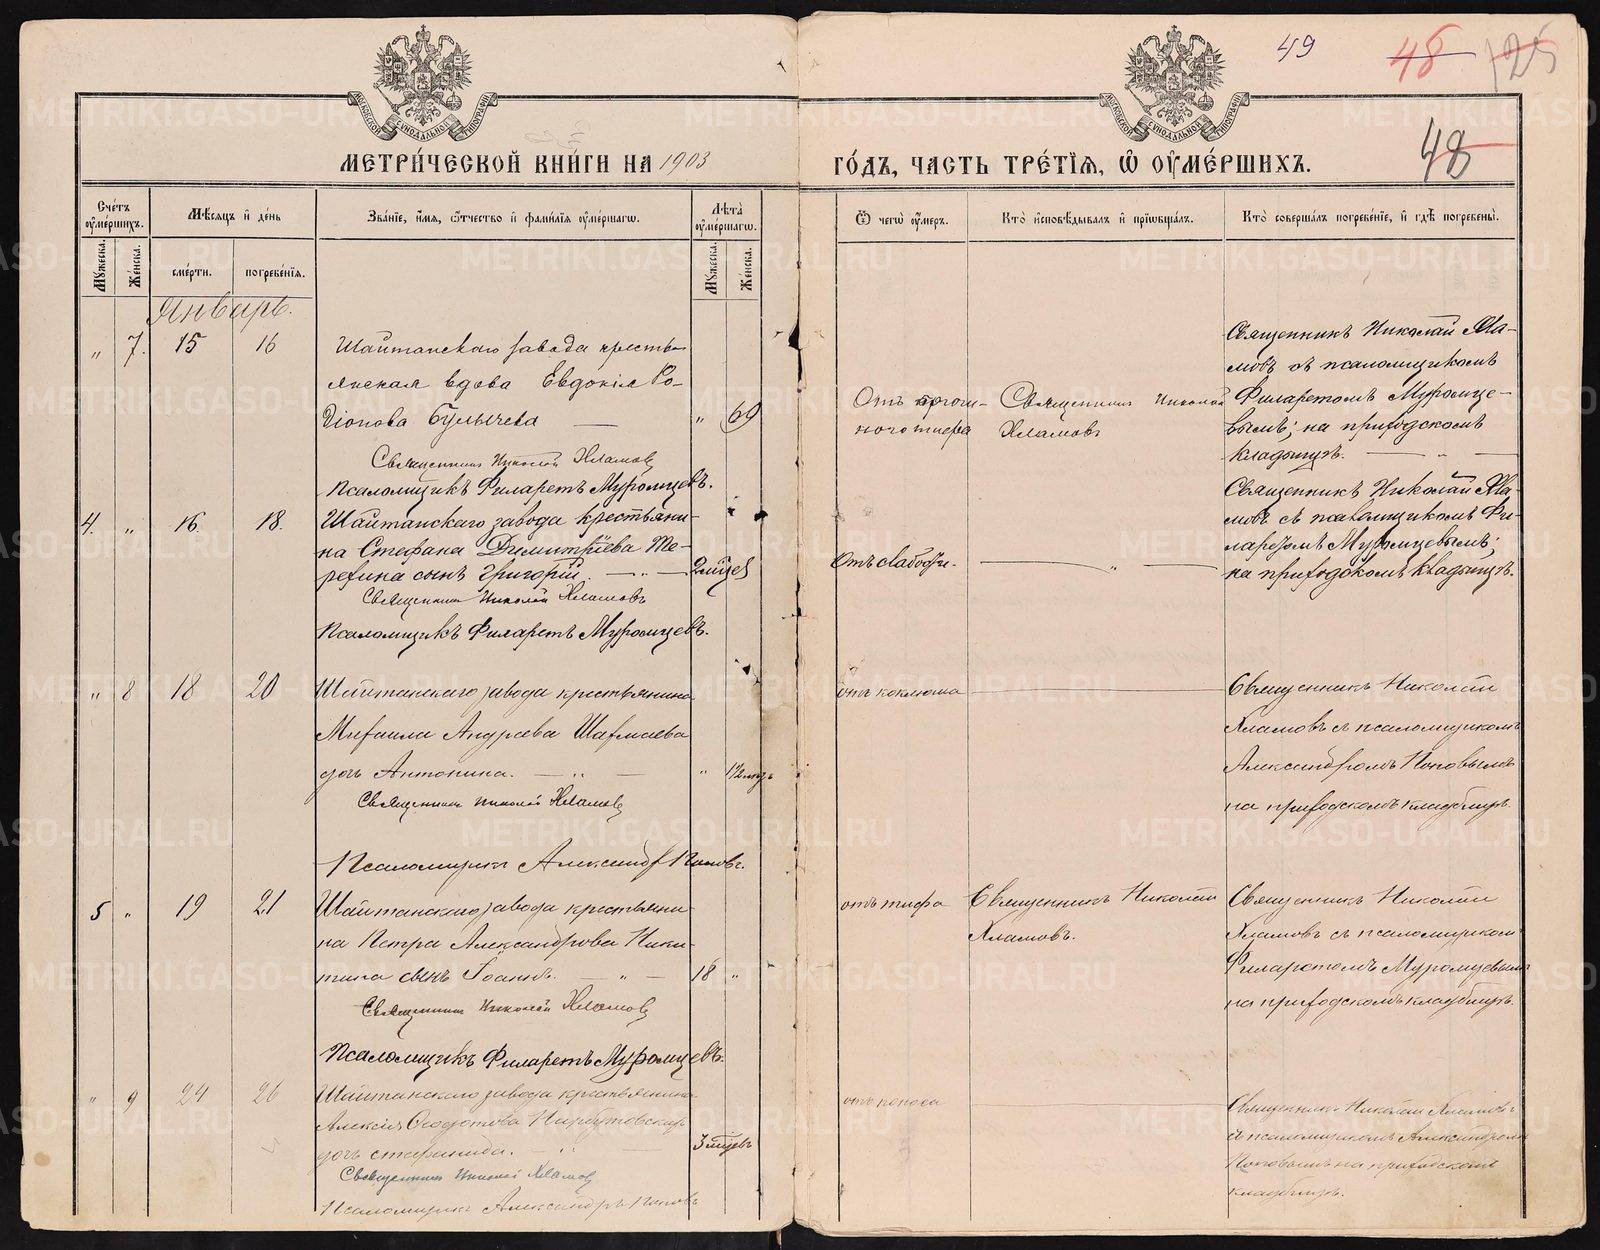 49 48 125
48
МОСКОВСКОЙ СѴНОДАЛЬНОЙ ТИПОГРАФІИ
МОСКОВСКОЙ СѴНОДАЛЬНОЙ ТИПОГРАФІИ
МЕТРИ́ЧЕСКОЙ КНИ́ГИ НА 1903
ГО́ДЪ, ЧАСТЬ ТРЕ́ТІѦ, Ѡ ОУМЕ́РШИХЪ.
Сче́тъ оуме́ршихъ.
Мѣсѧцъ и де́нь
Зва́нїе, и́мѧ, ѻтчество и фами́лїѧ оуме́ршагѡ.
Лѣта̀ оуме́ршагѡ.
Ѿ чегѡ̀ оу́меръ.
Кто̀ и҆сповѣ́дывалъ и҆ прїѡбща́лъ.
Кто̀ соверша́лъ погребе́нїе, и҆ гдѣ̀ погребены̀.
Мꙋжеска. Же́нска. сме́рти. погребе́нїѧ. Мꙋжеска. Же́нска.
Январь.
" 7. 15 16
Шайтанскаго завода кресть-
янская вдова Евдокія Ро-
діонова Булычева — " 69
Священникъ Николай Хламовъ
Псаломщикъ Филаретъ Муромцевъ.
Священникъ Николай
Хламовъ
Священникъ Николай Хла-
мовъ съ псаломщикомъ
Филаретомъ Муромце-
вымъ; на приходскомъ
кладбищѣ. — " —
4. " 16. 18.
Шайтанскаго завода крестьяни-
на Стефана Димитріева Те-
рехина сынъ Григорій. — " — 2 мѣсц.
Священникъ Николай Хламовъ
Псаломщикъ Филаретъ Муромцевъ.
Отъ слабости. — " —
Священникъ Николай Хла-
мовъ съ псаломщикомъ Фи-
ларетомъ Муромцевымъ;
на приходскомъ кладбищѣ.
" 8 18 20
Шайтанскаго завода крестьянина
Михаила Андреева
дочь Антонина. — " — "
Священникъ Николай Хламовъ
Псаломщикъ Александръ Поповъ.
отъ коклюша —
Священникъ Николай
Хламовъ съ псаломщикомъ
Александромъ Поповымъ
на приходскомъ кладбищѣ.
5 " 19 21
Шайтанскаго завода крестьяни-
на Петра Александрова Ники-
тина сынъ Іоаннъ. — " — 18 "
Священникъ Николай Хламовъ
Псаломщикъ Филаретъ Муромцевъ.
отъ тифа
Священникъ Николай
Хламовъ.
Священникъ Николай
Хламовъ съ псаломщикомъ
Филаретомъ Муромцевымъ
на приходскомъ кладбищѣ.
" 9 24 26
Шайтанскаго завода крестьянина
Алексія Ѳеодотова
дочь Стефанида. — " — 3 мѣсцевъ
Священникъ Николай Хламовъ
Псаломщикъ Александръ Поповъ
отъ поноса —
Священникъ Николай Хламовъ
съ псаломщикомъ Александромъ
Поповымъ на приходскомъ
кладбищѣ.
METRIKI.GASO-URAL.RU